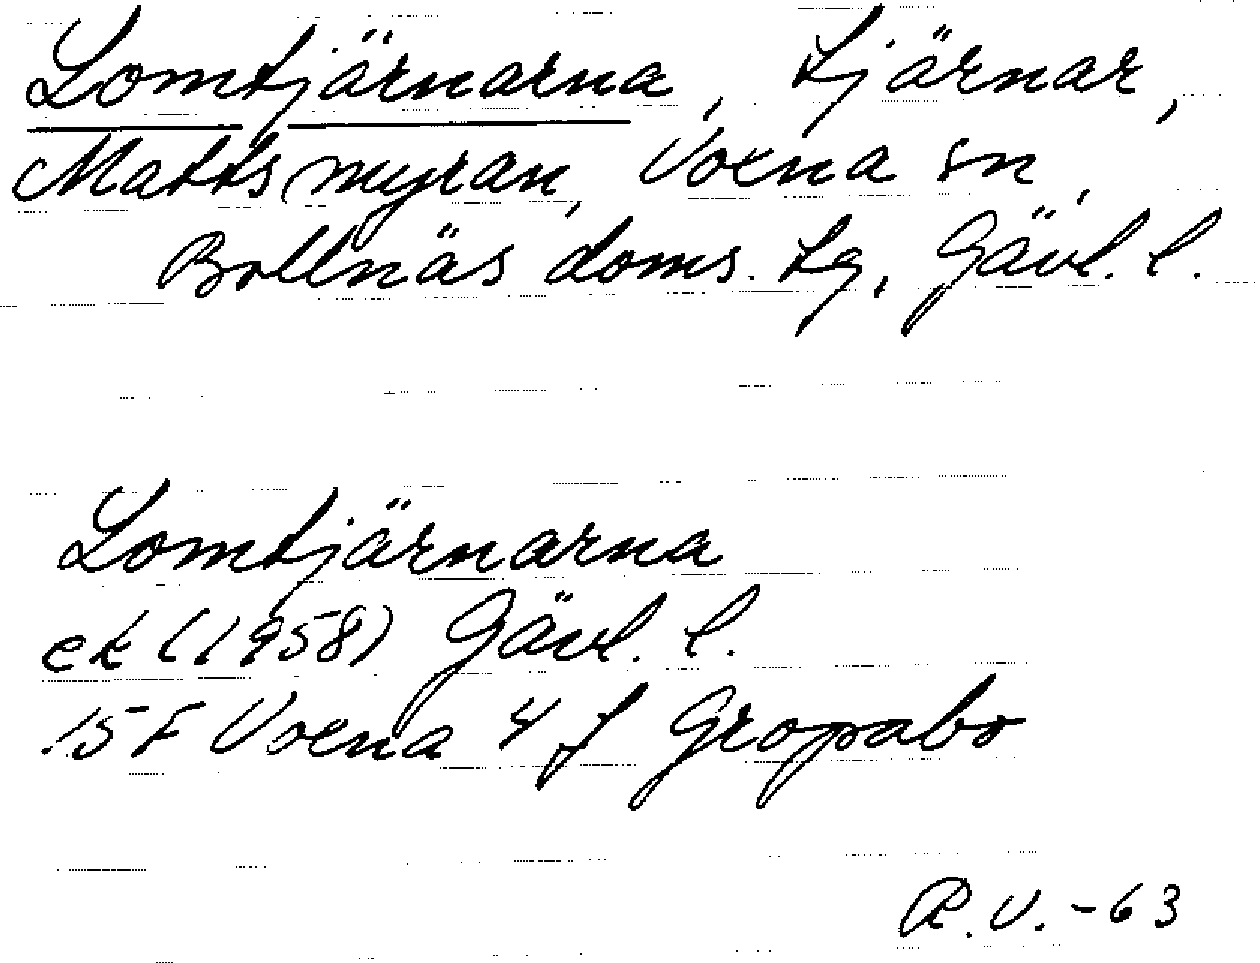 Lomtjärnarna, tjärnar,
Mattsmyran, Voxna sn,
Bollnäs doms. tg, Gävl. l.
Lomtjärnarna
ek (1958) Gävl. l.
15F Voxna 4 f Gropabo
R.V. -63